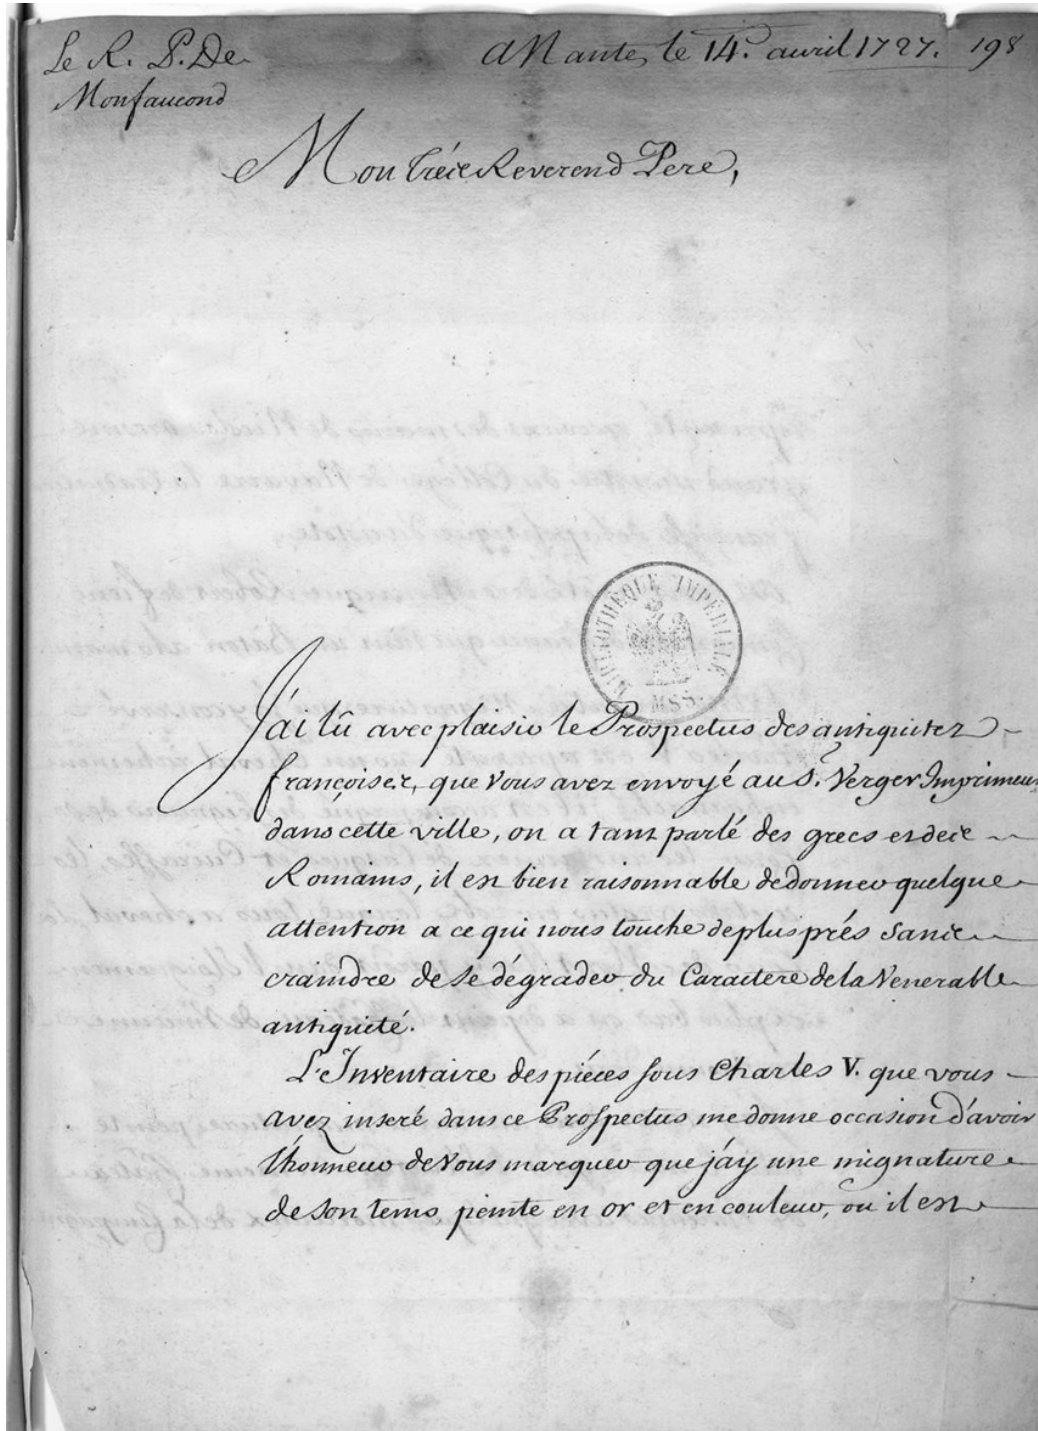 Le R. P. De
Monfaucond
A Nante, le 14. avril 1727. 198
Mon trés Reverend Pere,
BIBLIOTHÈQUE IMPÉRIALE
MSS.
J'ai lû avec plaisir le Prospectus des antiquitez
françoises, que vous avez envoyé au S.r Verger Imprimeur
dans cette ville, on a tant parlé des grecs et des
Romains, il est bien raisonnable de donner quelque
attention a ce qui nous touche de plus prés sans
craindre de se dégrader du Caractere de la Venerable
antiquité.
L'Inventaire des piéces sous Charles V. que vous
avez inseré dans ce Prospectus me donne occasion d'avoir
l'honneur de Vous marquer que j'ay une mignature
de son tems, peinte en or et en couleur, ou il est